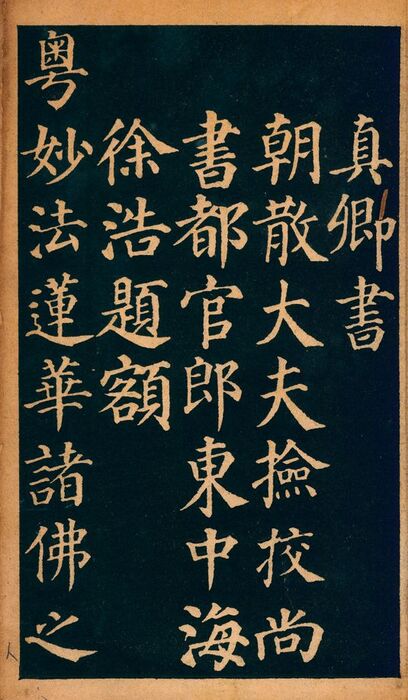 真卿書
朝散大夫撿挍尚
書都官郎東中海
徐浩題額
粤妙法蓮華諸佛之